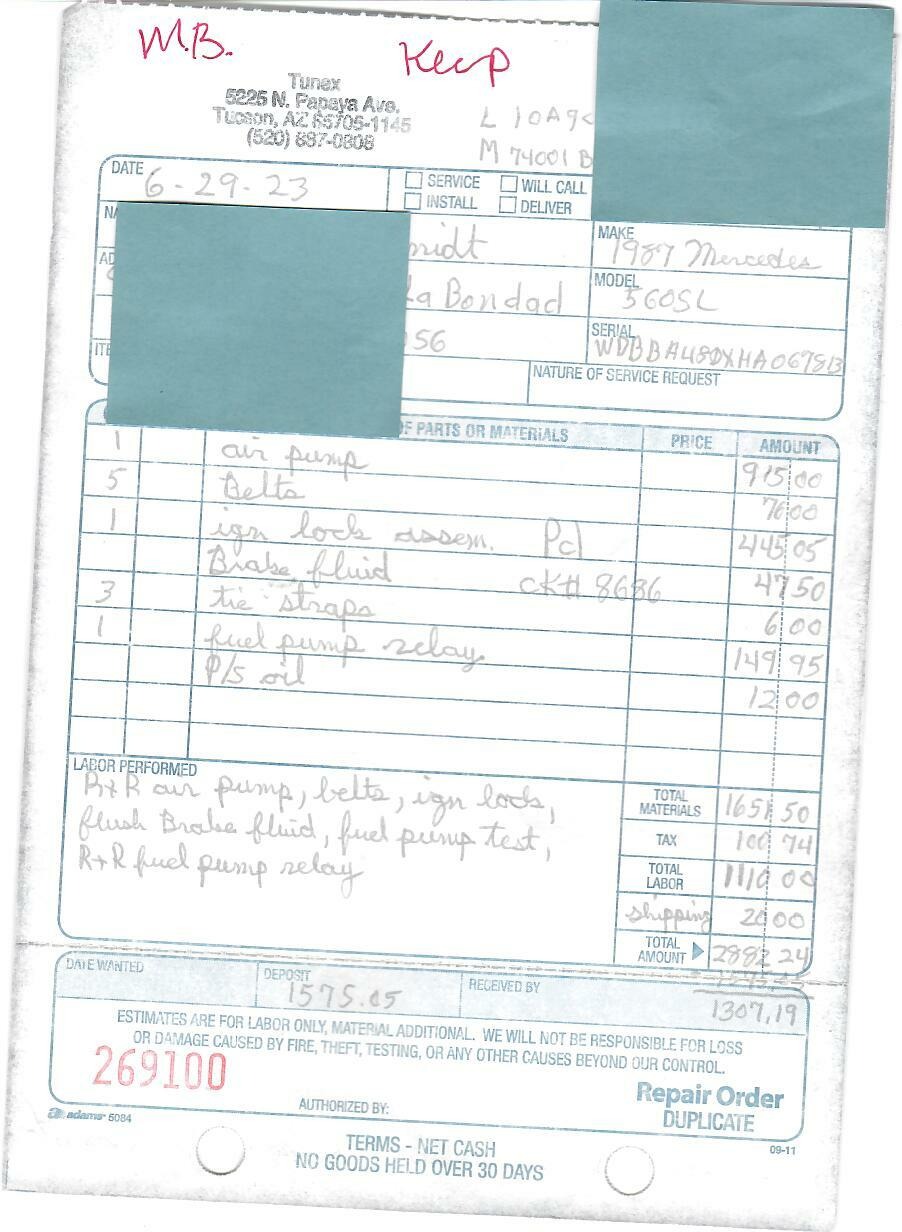 M.B. Keep
Tunex
5225 N. Papaya Ave.
Tucson, AZ 85705-1145
(520) 887-0808
L 10A9
M 74001 B
DATE
6-29-23
SERVICE WILL CALL
INSTALL DELIVER
midt
MAKE
1987 Mercedes
La Bondad
MODEL
560SL
56
SERIAL
WDBBA48DXHA067813
ITE
NATURE OF SERVICE REQUEST
OF PARTS OR MATERIALS PRICE AMOUNT
1 air pump 915 00
5 Belts 76 00
1 ign lock assem. Pd 445 05
Brake fluid CK# 8686 47 50
3 tie straps 6 00
1 fuel pump relay 149 95
P/S oil 12 00
LABOR PERFORMED
R+R air pump, belts, ign lock,
flush Brake fluid, fuel pump test,
R+R fuel pump relay
TOTAL MATERIALS 1651 50
TAX 100 74
TOTAL LABOR 1110 00
shipping 20 00
TOTAL AMOUNT 2882 24
DATE WANTED
DEPOSIT
1575.05
RECEIVED BY
1307.19
ESTIMATES ARE FOR LABOR ONLY, MATERIAL ADDITIONAL. WE WILL NOT BE RESPONSIBLE FOR LOSS
OR DAMAGE CAUSED BY FIRE, THEFT, TESTING, OR ANY OTHER CAUSES BEYOND OUR CONTROL.
269100
Repair Order
DUPLICATE
AUTHORIZED BY:
adams 5084
09-11
TERMS - NET CASH
NO GOODS HELD OVER 30 DAYS